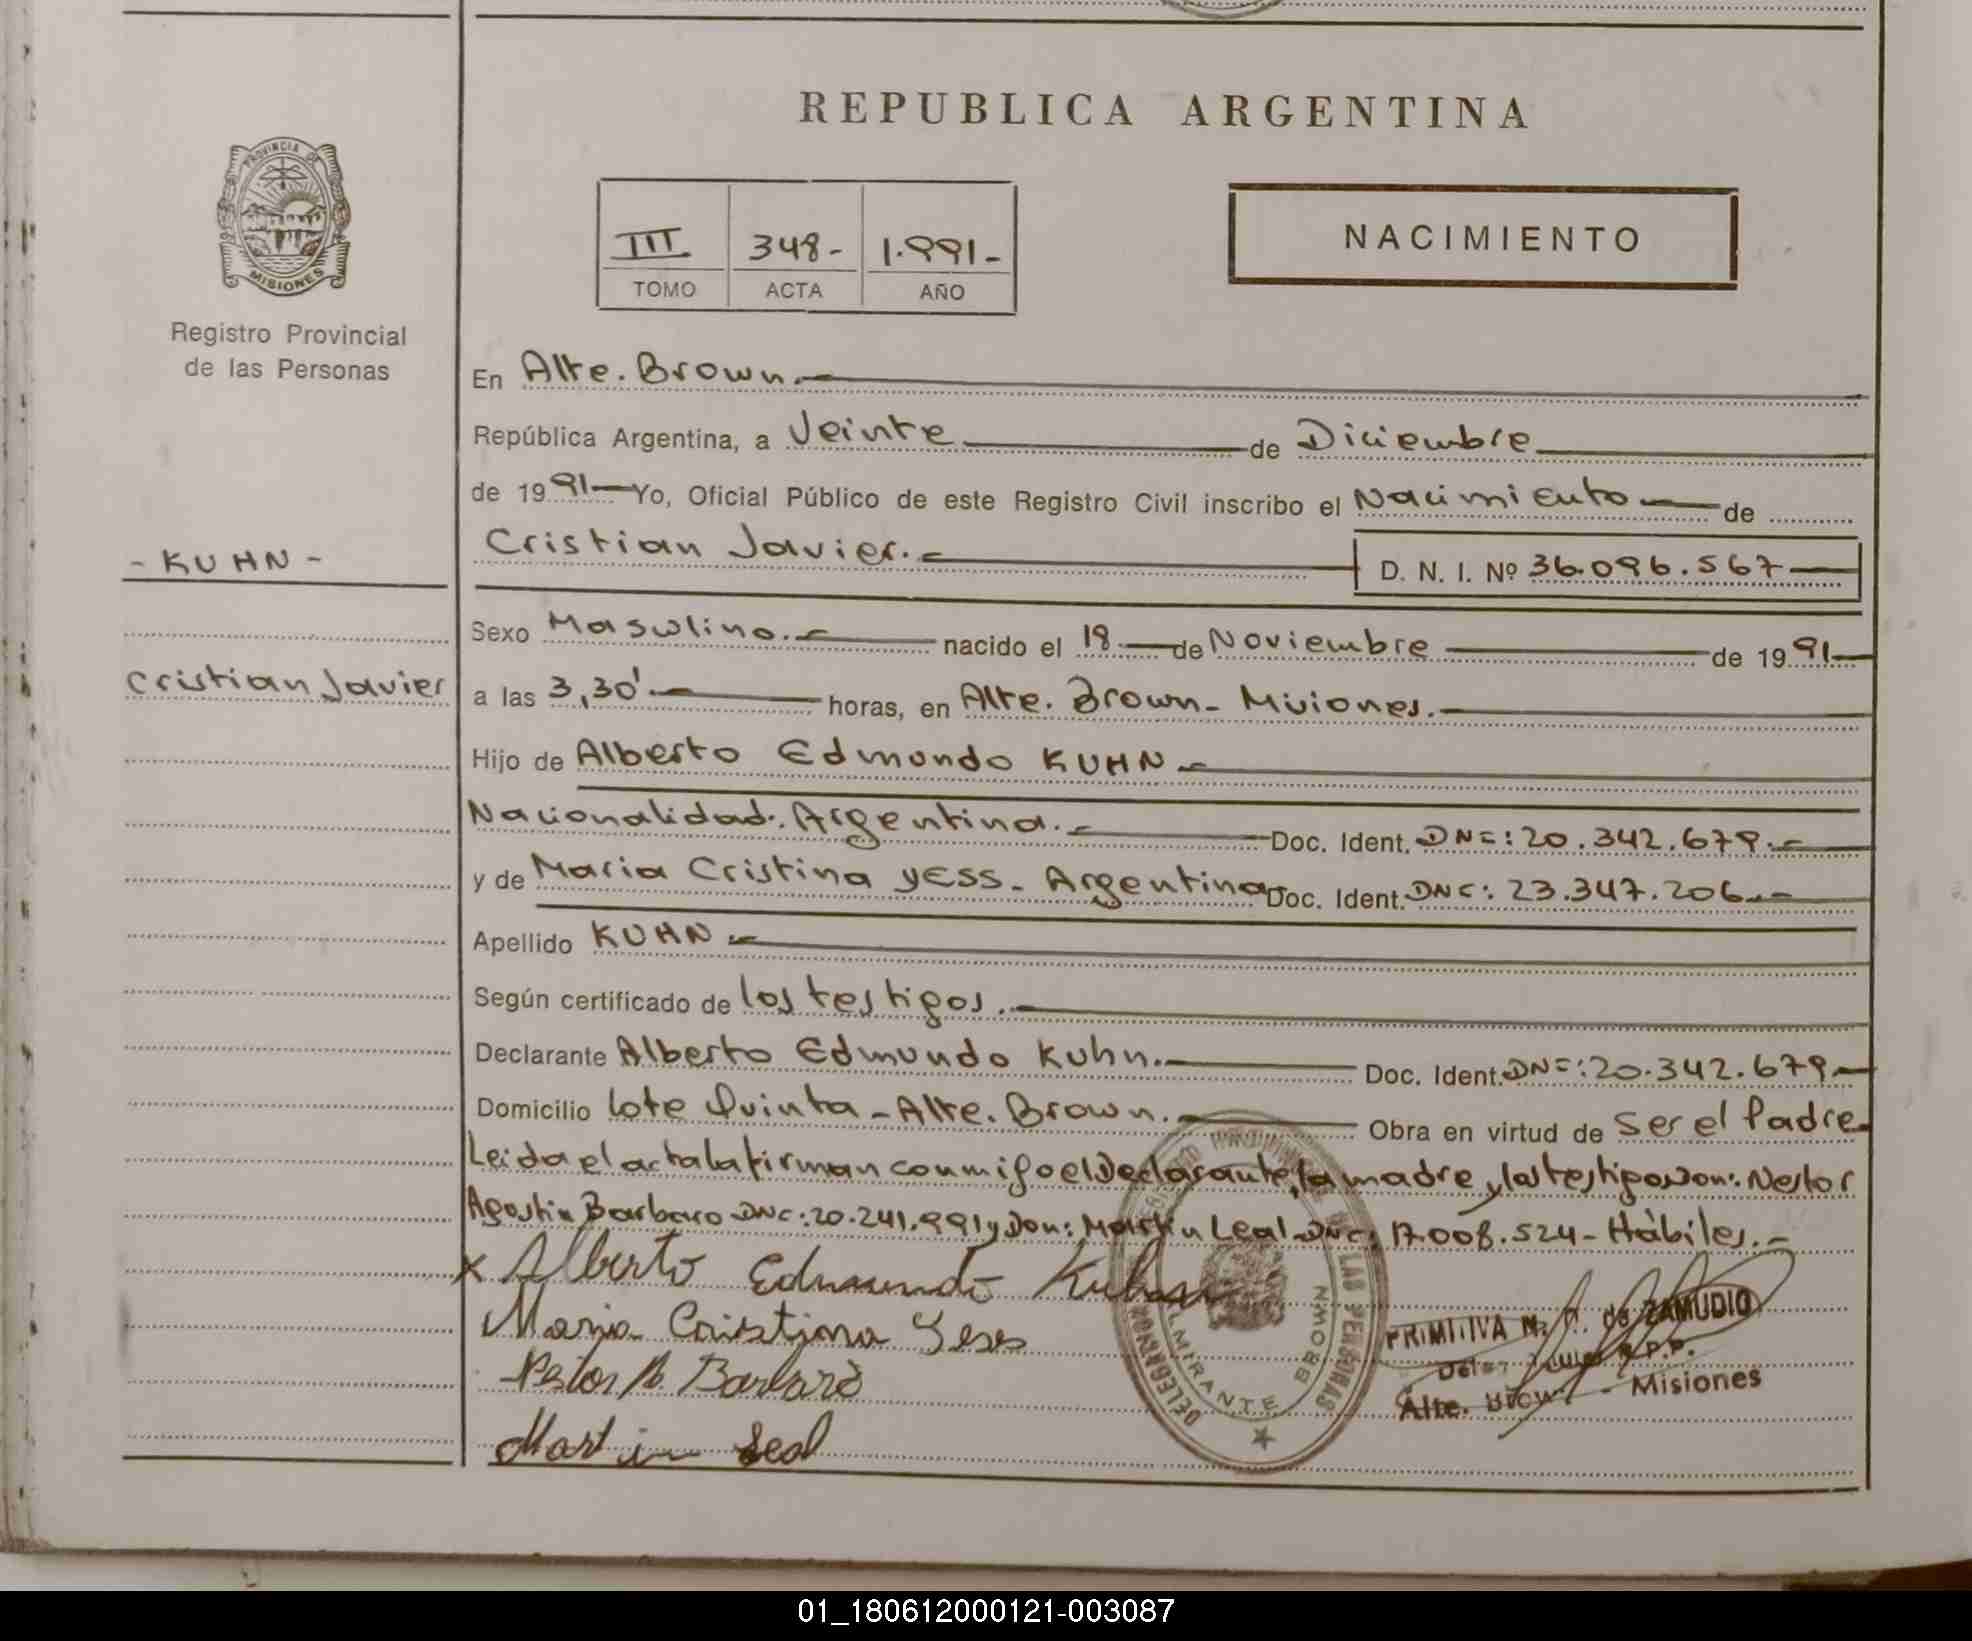 REPUBLICA ARGENTINA
PROVINCIA DE
MISIONES
Registro Provincial
de las Personas
III 348- 1.991-
TOMO ACTA AÑO
NACIMIENTO
En Alte. Brown.-
República Argentina, a Veinte de Diciembre
de 1991- Yo, Oficial Público de este Registro Civil inscribo el Nacimiento de
- KUHN -
Cristian Javier.- D. N. I. Nº 36.096.567
Sexo Masculino.- nacido el 18 de Noviembre de 1991
Cristian Javier
a las 3,30' horas, en Alte. Brown- Misiones.-
Hijo de Alberto Edmundo KUHN.-
Nacionalidad: Argentina.- Doc. Ident. DNI: 20.342.679.-
y de Maria Cristina YESS- Argentina Doc. Ident. DNI: 23.347.206.-
Apellido KUHN.-
Según certificado de los testigos.-
Declarante Alberto Edmundo Kuhn.- Doc. Ident. DNI: 20.342.679.-
Domicilio Lote Quinta - Alte. Brown.- Obra en virtud de Ser el Padre
Leida el acta la firman conmigo el Declarante, la madre y los testigos Don: Nestor
Agostin Barbaro DNI: 20.241.991 y Don: Martin Leal DNI: 17.008.524- Hábiles.-
x Alberto Edmundo Kuhn
Maria Cristina Yess
Nestor A. Barbaro
Martin Leal
DELEGACION
LAS PERSONAS
ALMIRANTE BROWN
PRIMITIVA N. P. de ZAMUDIO
R.P.P.
Alte. Brown - Misiones
01_180612000121-003087